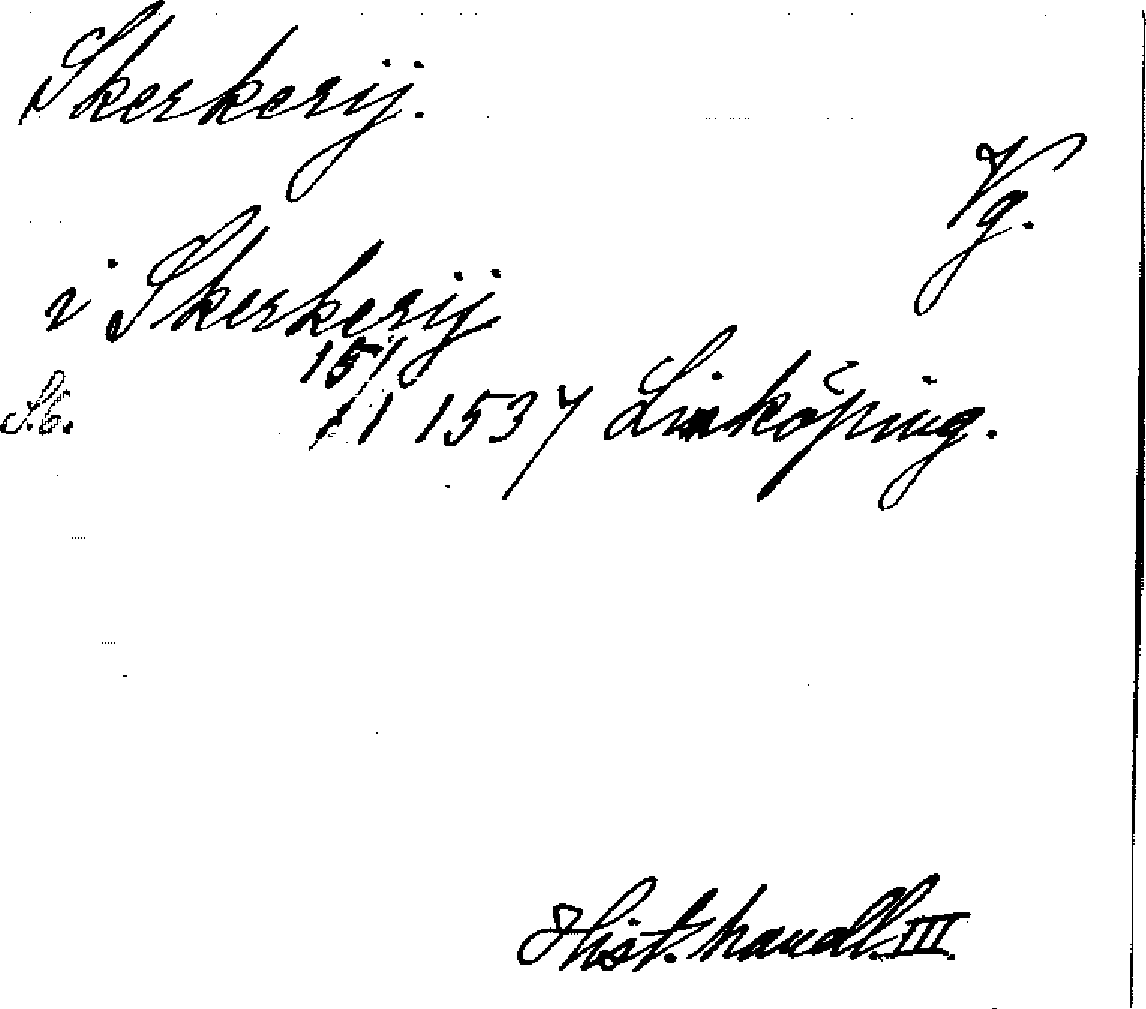 Skerkerij.
Vg.
i Skerkerij
S. 6. 15/1 1537 Linköping.
Hist. handl. III.